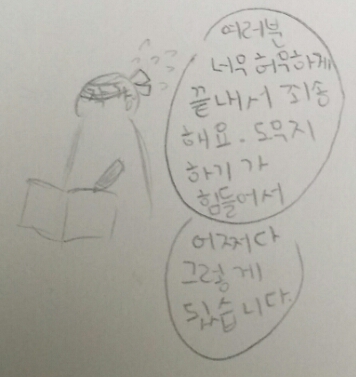 여러분
너무 허무하게
끝내서 죄송
해요. 도무지
하기가
힘들어서
어쩌다
그렇게
됬습니다.